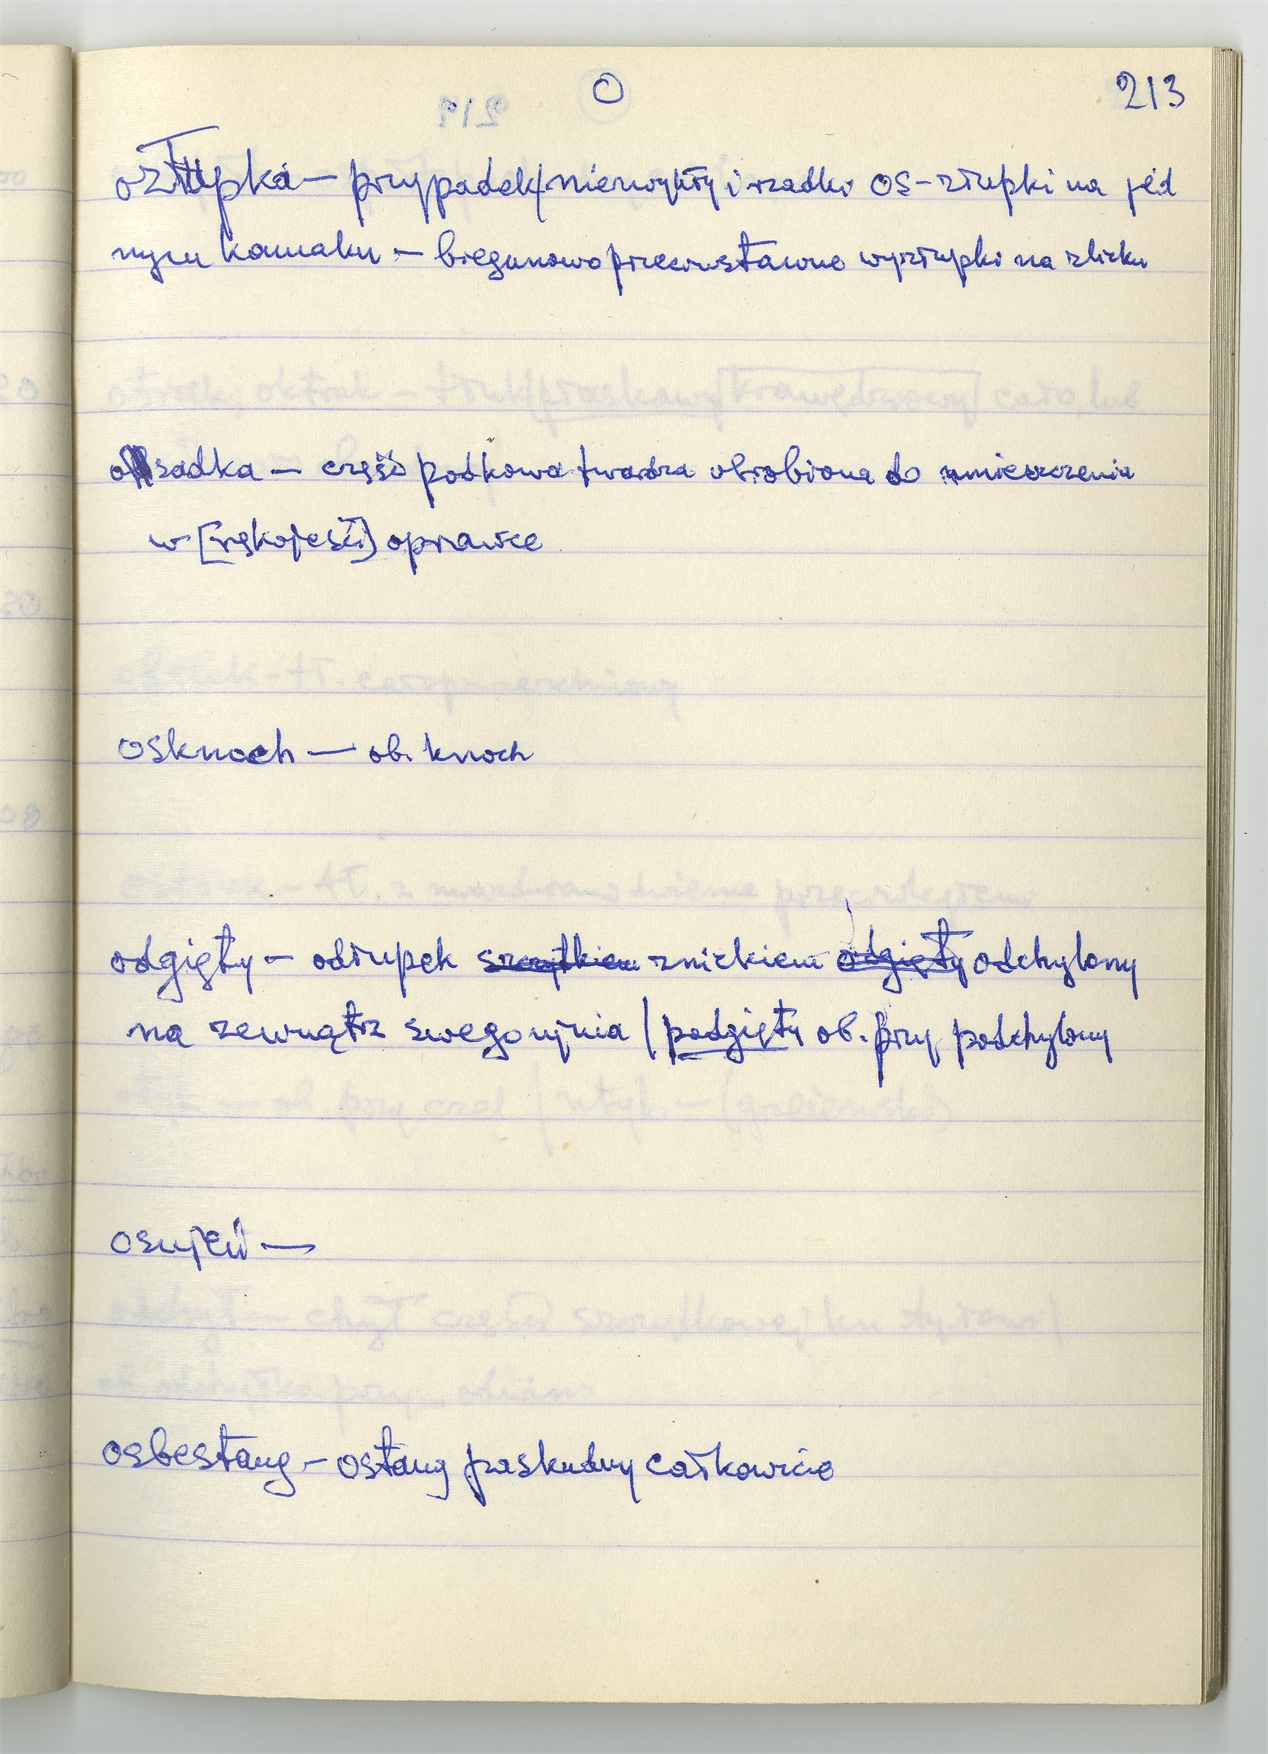 O 213
ozłupka — przypadek/niezwykły i rzadki os-złupki na jed
nym kamaku — biegunowo przeciwstawne wyzłupki na zlicku
osadka — część podkowa twardza obrobiona do umieszczenia
w [rękojeści] oprawce
osknoch — ob. knoch
odgięty — odłupek szczytkiem znickiem odgięty odchylony
na zewnątrz swego / podgięty ob. przy podchylony
osujeń —
osbestany — ostany paskudny całkowicie